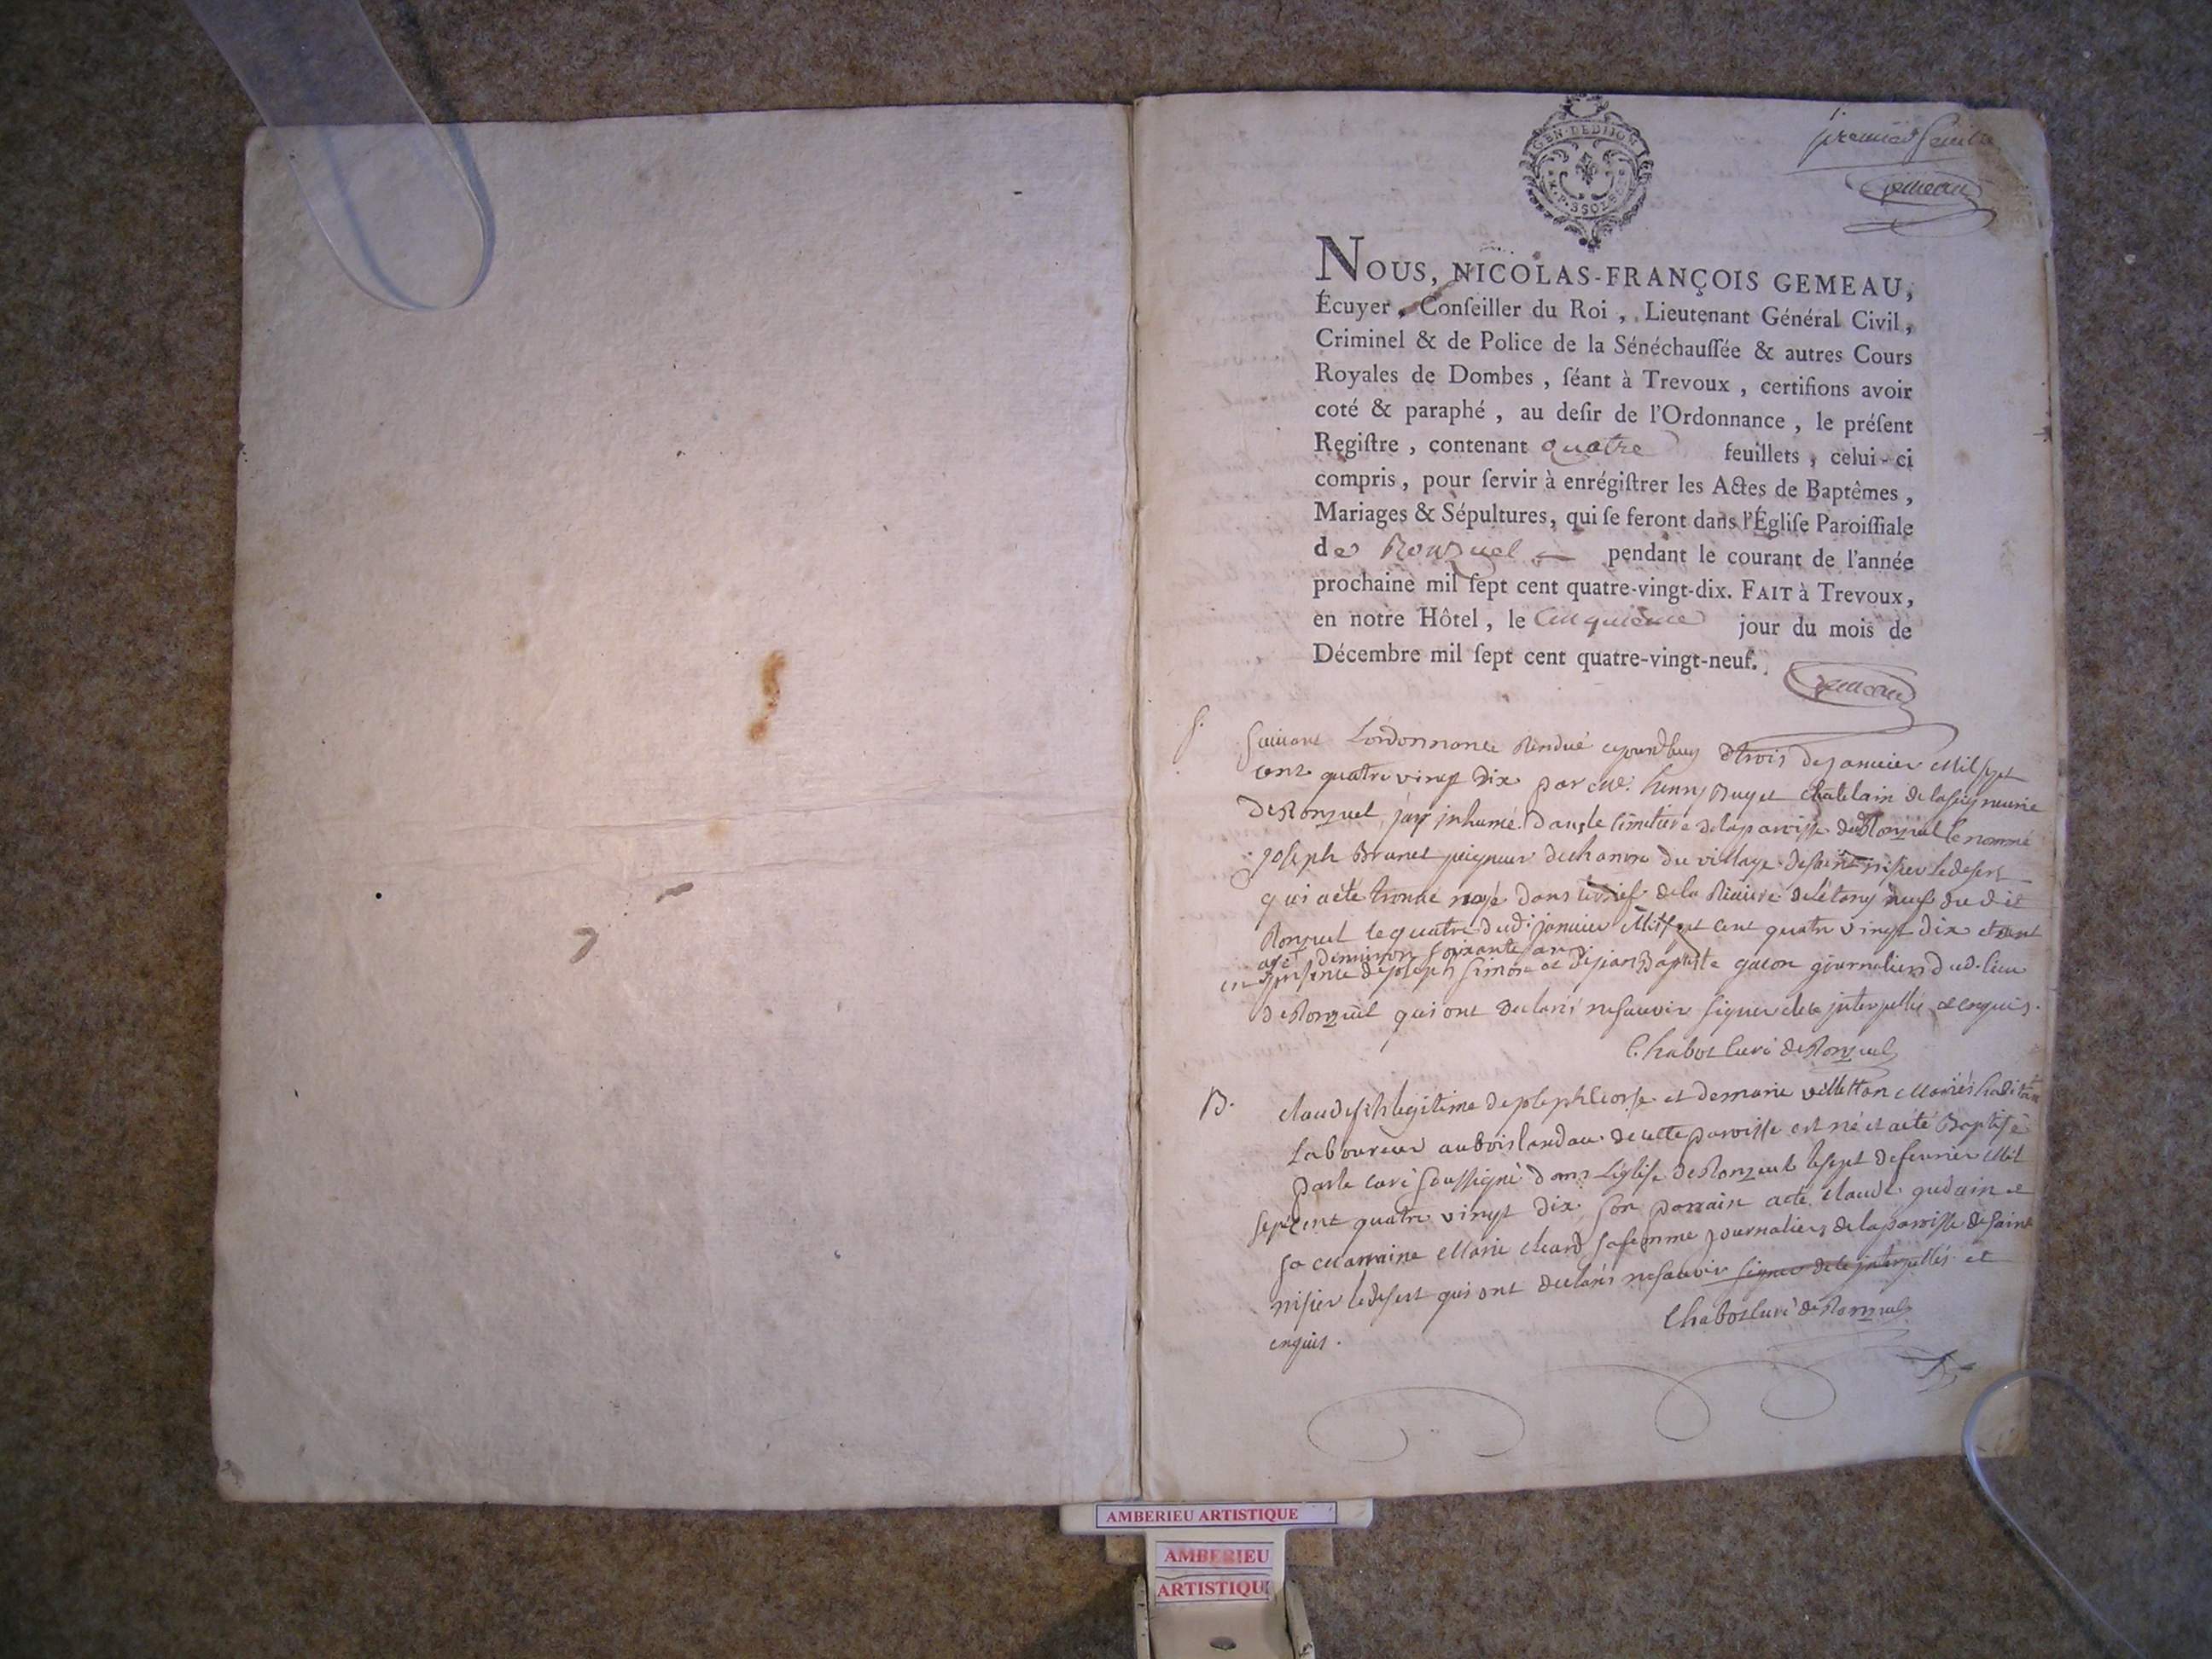 GEN·DEDIJON
premier feuillet
Gemeau
NOUS, NICOLAS-FRANÇOIS GEMEAU,
Écuyer, Conſeiller du Roi, Lieutenant Général Civil,
Criminel & de Police de la Sénéchauſſée & autres Cours
Royales de Dombes, ſéant à Trevoux, certifions avoir
coté & paraphé, au deſir de l'Ordonnance, le préſent
Regiſtre, contenant quatre feuillets, celui-ci
compris, pour ſervir à enrégiſtrer les Actes de Baptêmes,
Mariages & Sépultures, qui ſe feront dans l'Égliſe Paroiſſiale
de Ronzuel pendant le courant de l'année
prochaine mil ſept cent quatre-vingt-dix. FAIT à Trevoux,
en notre Hôtel, le Cinquieme jour du mois de
Décembre mil ſept cent quatre-vingt-neuf.
Gemeau
S. Suivant L'ordonnance Rendué cejourdhuy trois de janvier Mil sept
cent quatre vingt dix par Me. henry Buget chatelain de la seigneurie
de Ronzuel, jay inhumé dans le cimetiere de la paroisse de Ronzuel le nommé
joseph Brunet peigneur de chanvre du village de saint nisier le desert
qui a eté trouvé noyé dans le bief de la Riviere de létang neuf du dit
Ronzuel le quatre dud. janvier Mil sept cent quatre vingt dix etant
agé d'environ soixante ans
en presence de joseph Simon et de jean Baptiste gacon journaliers dud. lieu
de Ronzuel qui ont declarés ne sauvoir signer de ce interpellés et enquis.
Chabot Curé de Ronzuel
B. claude fils legitime de joseph Corse et de marie villetton Mariés habitant
Laboureur au bois landau de cette paroisse est né et a eté Baptisé
par le curé Soussigné dans L'église de Ronzuel le sept de fevrier Mil
sept cent quatre vingt dix, son parrain a eté claude gudin et
sa Marraine Marie cleard sa femme journaliers de la paroisse de saint
nisier le desert qui ont declarés ne sauvoir signer de ce interpellés et
enquis.
Chabot Curé de Ronzuel
AMBERIEU ARTISTIQUE
AMBERIEU
ARTISTIQU